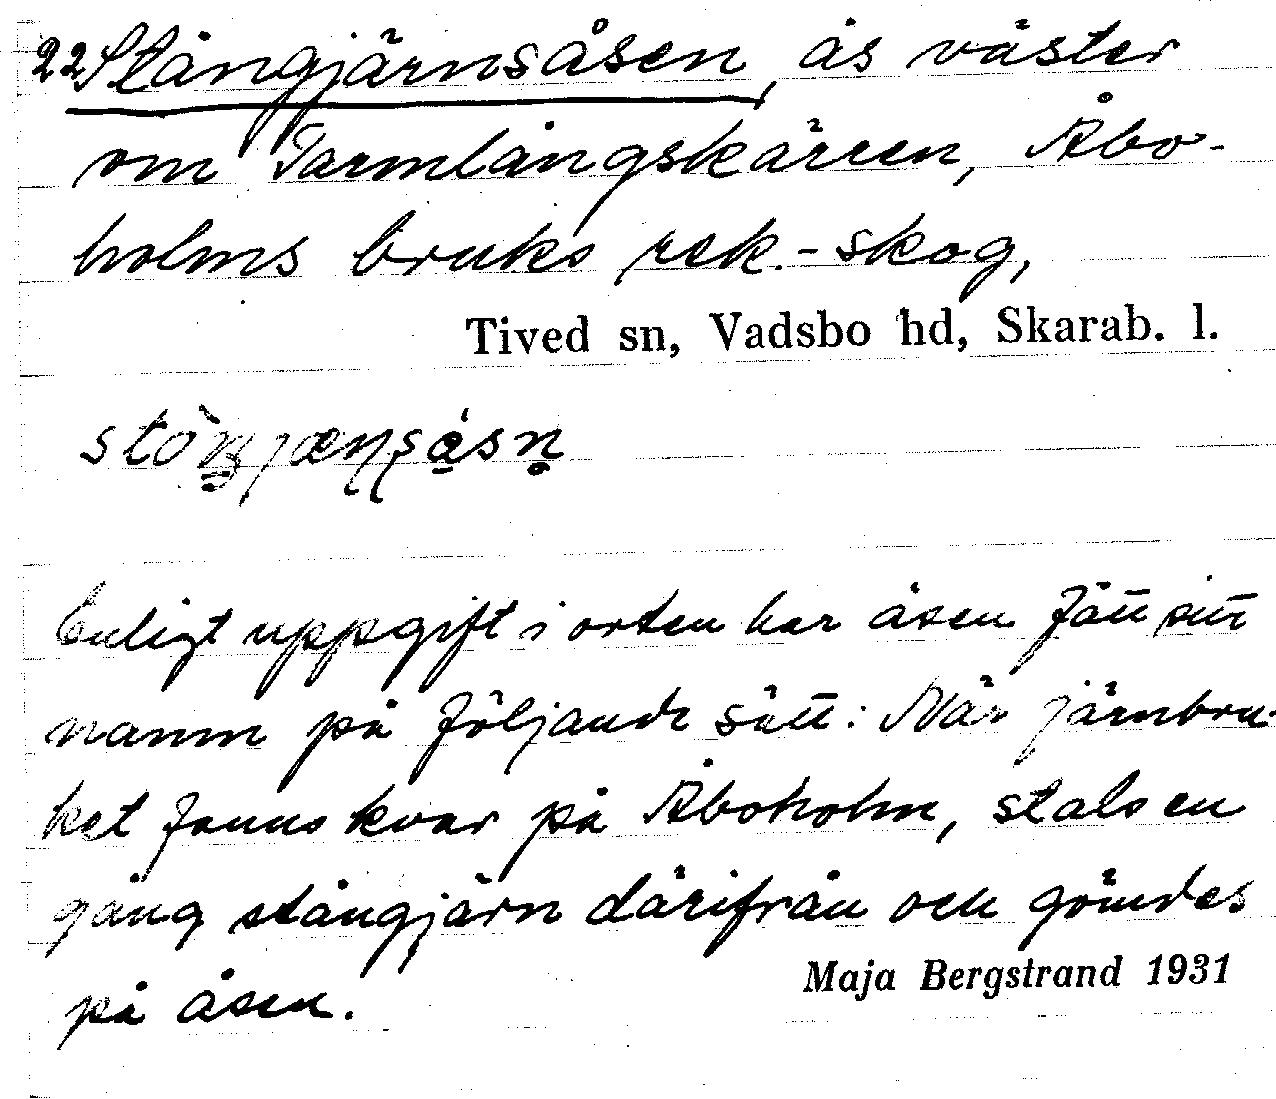 22 Stångjärnsåsen, ås väster
om Tarmlångskärren, Åbo-
holms bruks rek.-skog,
Tived sn, Vadsbo hd, Skarab. l.
Enligt uppgift i orten har åsen fått sitt
namn på följande sätt: När järnbru-
ket fanns kvar på Åboholm, stals en
gång stångjärn därifrån och gömdes
på åsen.
Maja Bergstrand 1931